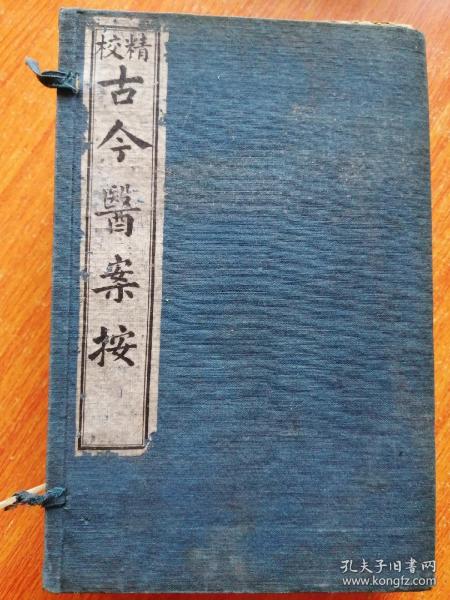 精校
古今醫案按
孔夫子旧书网
www.kongfz.com